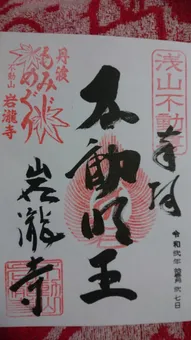 浅山不動
奉拝
令和弐年
七日
不動明王
丹波
もみじめぐり
不動山
岩瀧寺
岩瀧寺